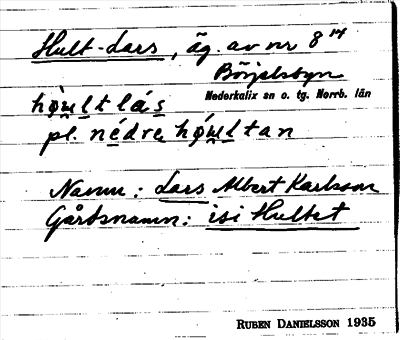 Hult-Lars, äg. av nr 8¹⁴
Börjelsbyn
Nederkalix sn o. tg. Norrb. län
hò̤u̯ḷt lás̱
pl. nédre hó̤u̯ḷtan
Namn: Lars Albert Karlsson
Gårdsnamn: isi Hultet
RUBEN DANIELSSON 1935